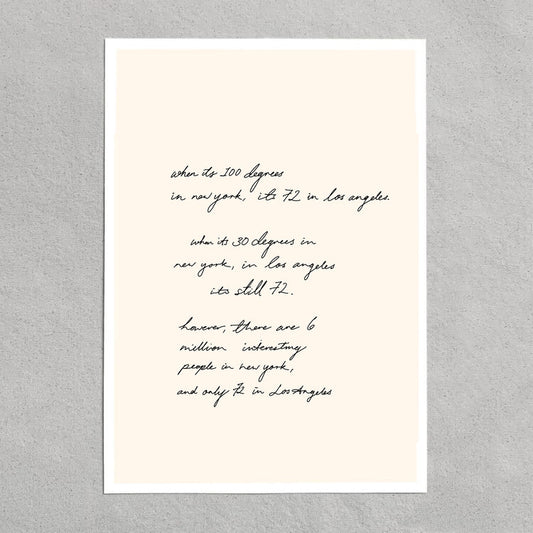 when its 100 degrees
in new york, its 72 in los angeles.
when its 30 degrees in
new york, in los angeles
its still 72.
however, there are 6
million interesting
people in new york,
and only 72 in Los Angeles